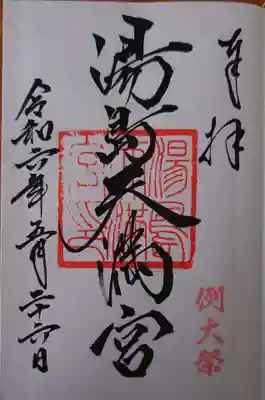 奉拝
例大祭
湯島天満宮
令和六年五月二十六日